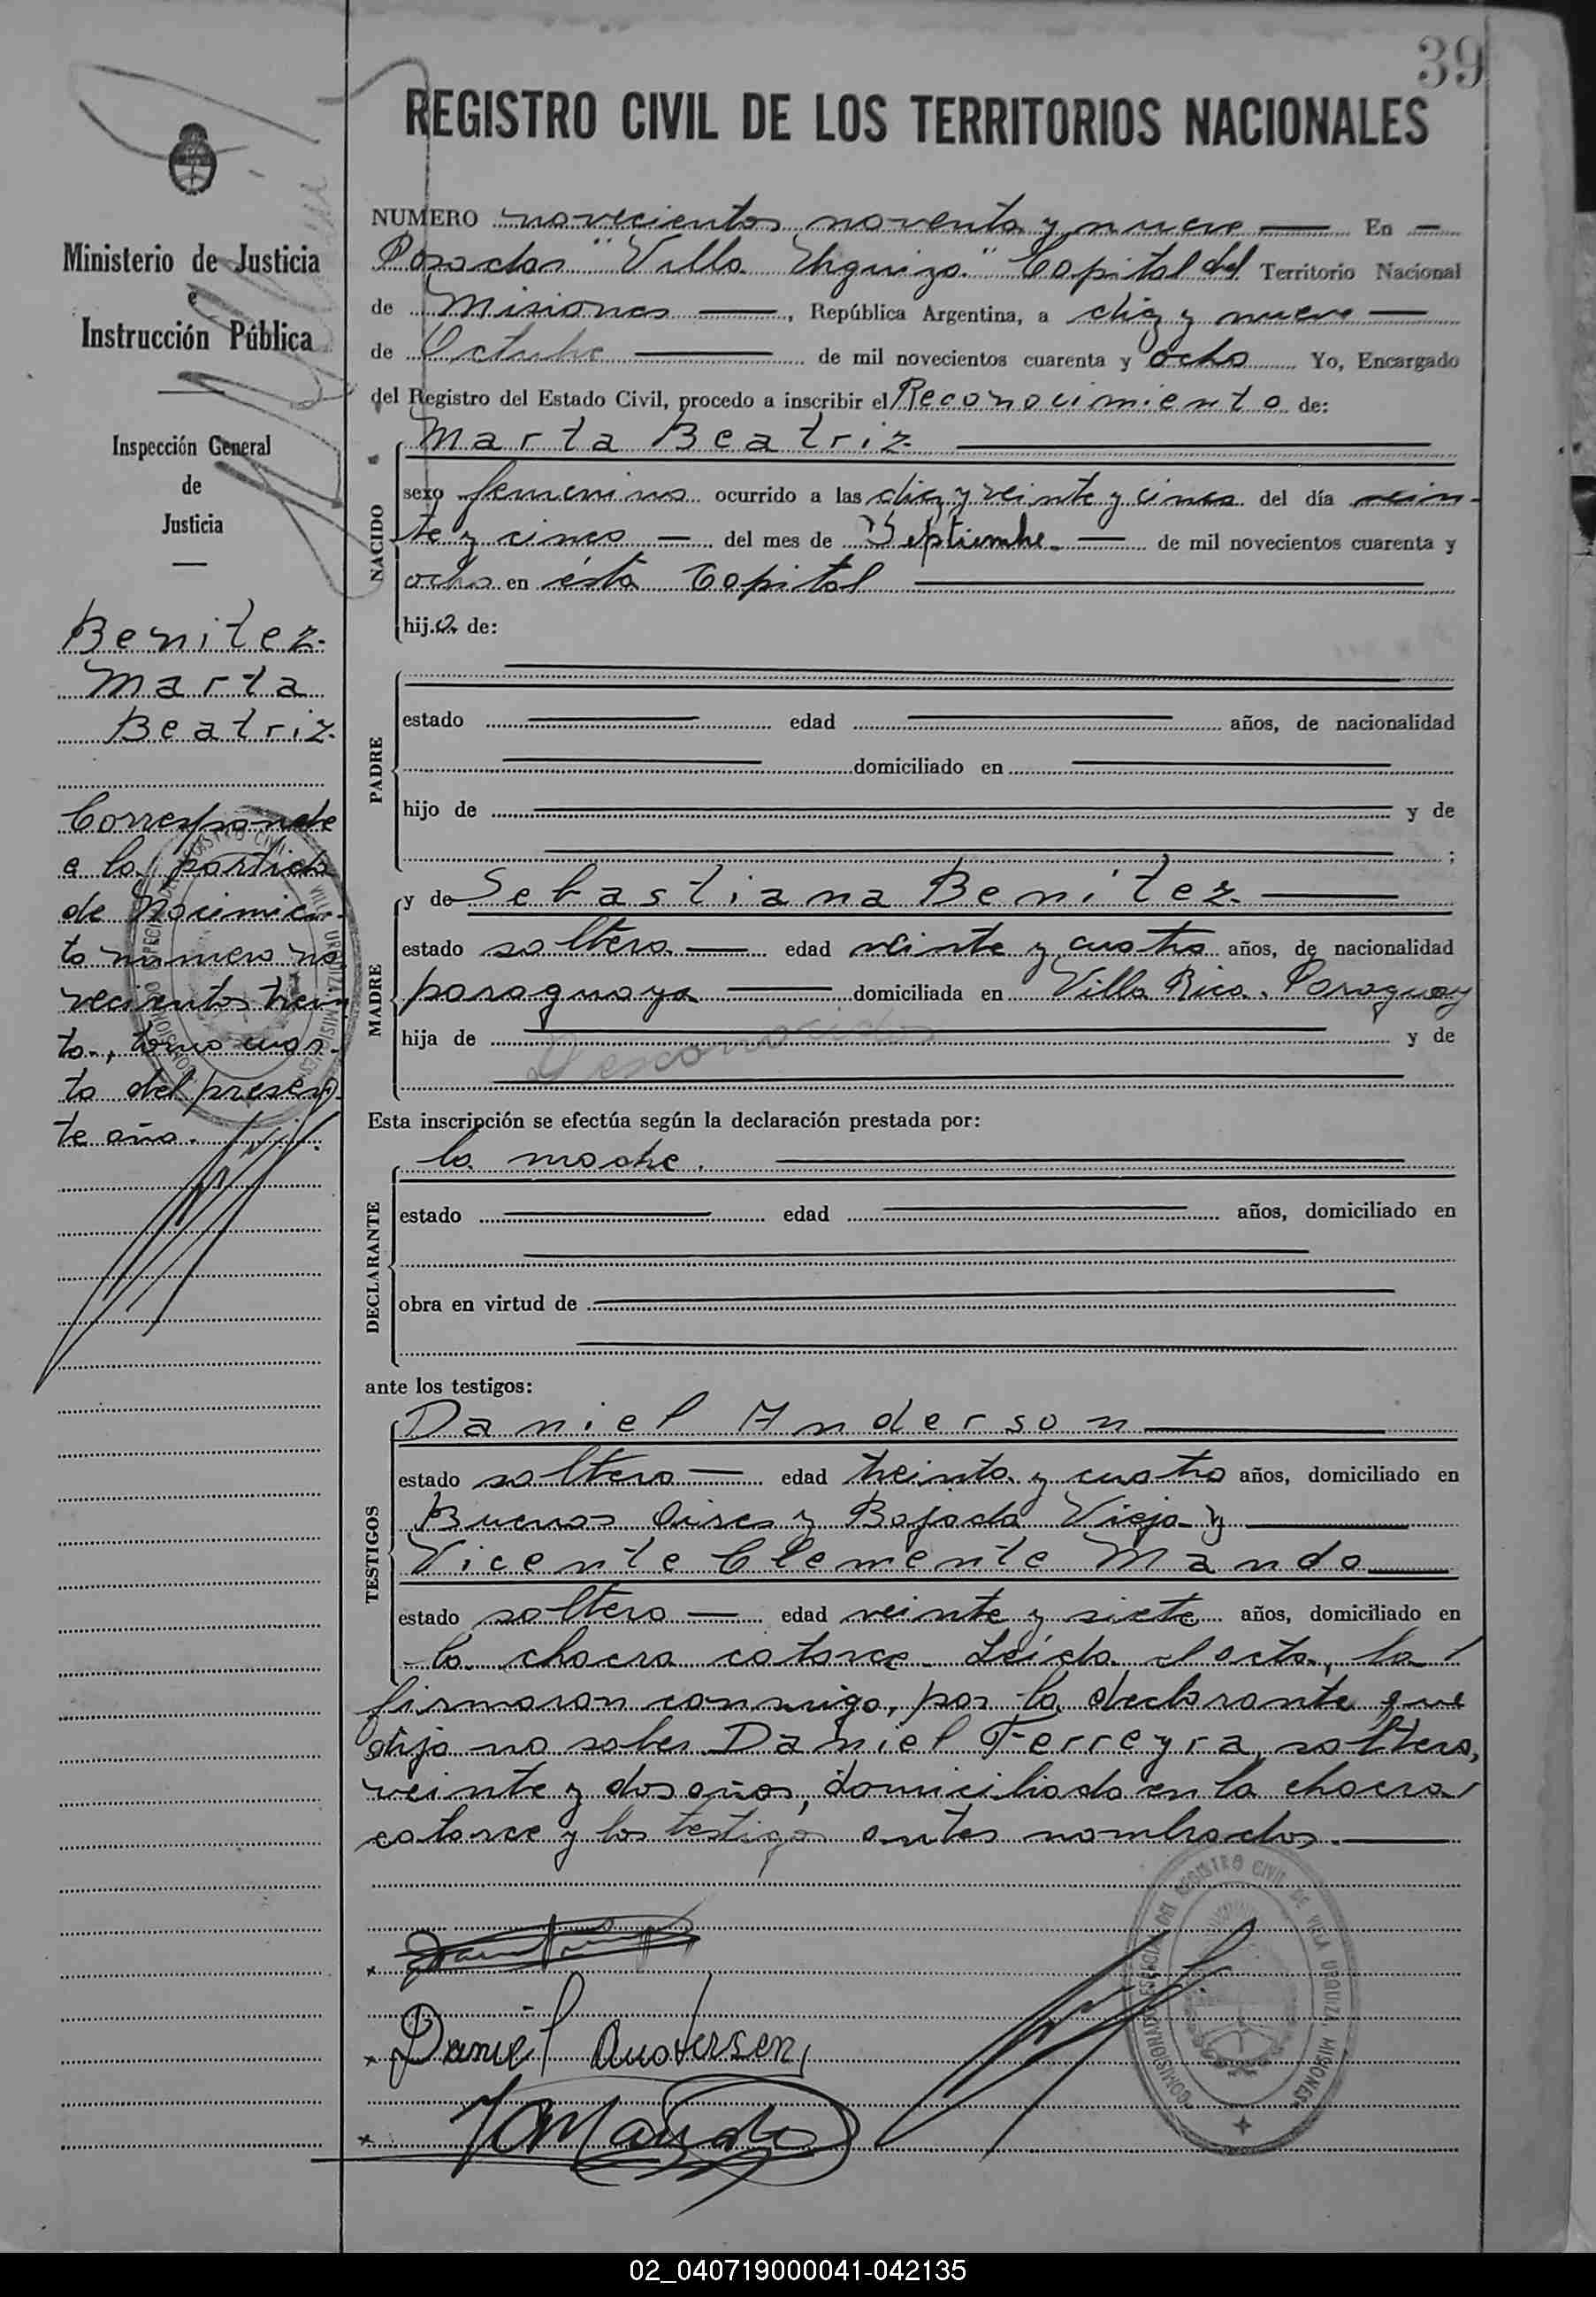 39
REGISTRO CIVIL DE LOS TERRITORIOS NACIONALES
Ministerio de Justicia
e
Instrucción Pública
Inspección General
de
Justicia
Benitez
Marta
Beatriz
Corresponde
a la partida
de Nacimien-
to numero no
vecientos trein
ta, tomo cuar-
to del presen-
te año.
NUMERO novecientos noventa y nueve En
Posadas "Villa Urquiza" Capital del Territorio Nacional
de Misiones, República Argentina, a diez y nueve
de Octubre de mil novecientos cuarenta y ocho Yo, Encargado
del Registro del Estado Civil, procedo a inscribir el Reconocimiento de:
NACIDO
Marta Beatriz
sexo femenino ocurrido a las diez y veinte y cinco del día vein-
te y cinco del mes de Septiembre de mil novecientos cuarenta y
ocho en ésta Capital
hija de:
PADRE
estado edad años, de nacionalidad
domiciliado en
hijo de y de
;
MADRE
y de Sebastiana Benitez
estado soltera edad veinte y cuatro años, de nacionalidad
paraguaya domiciliada en Villa Rica. Paraguay
hija de Desconocidos y de
Esta inscripción se efectúa según la declaración prestada por:
DECLARANTE
la madre.
estado edad años, domiciliado en
obra en virtud de
ante los testigos:
TESTIGOS
Daniel Anderson
estado soltero edad treinta y cuatro años, domiciliado en
Buenos Aires y Bajada Vieja y
Vicente Clemente Mando
estado soltero edad veinte y siete años, domiciliado en
la chacra catorce. Leída el acta, la
firmaron conmigo, por la declarante que
dijo no saber Daniel Ferreyra, soltero,
veinte y dos años, domiciliado en la chacra
catorce y los testigos antes nombrados.
Daniel Andersen
Mando
COMISIONADO ESPECIAL DEL REGISTRO CIVIL DE VILLA URQUIZA MISIONES
02_040719000041-042135